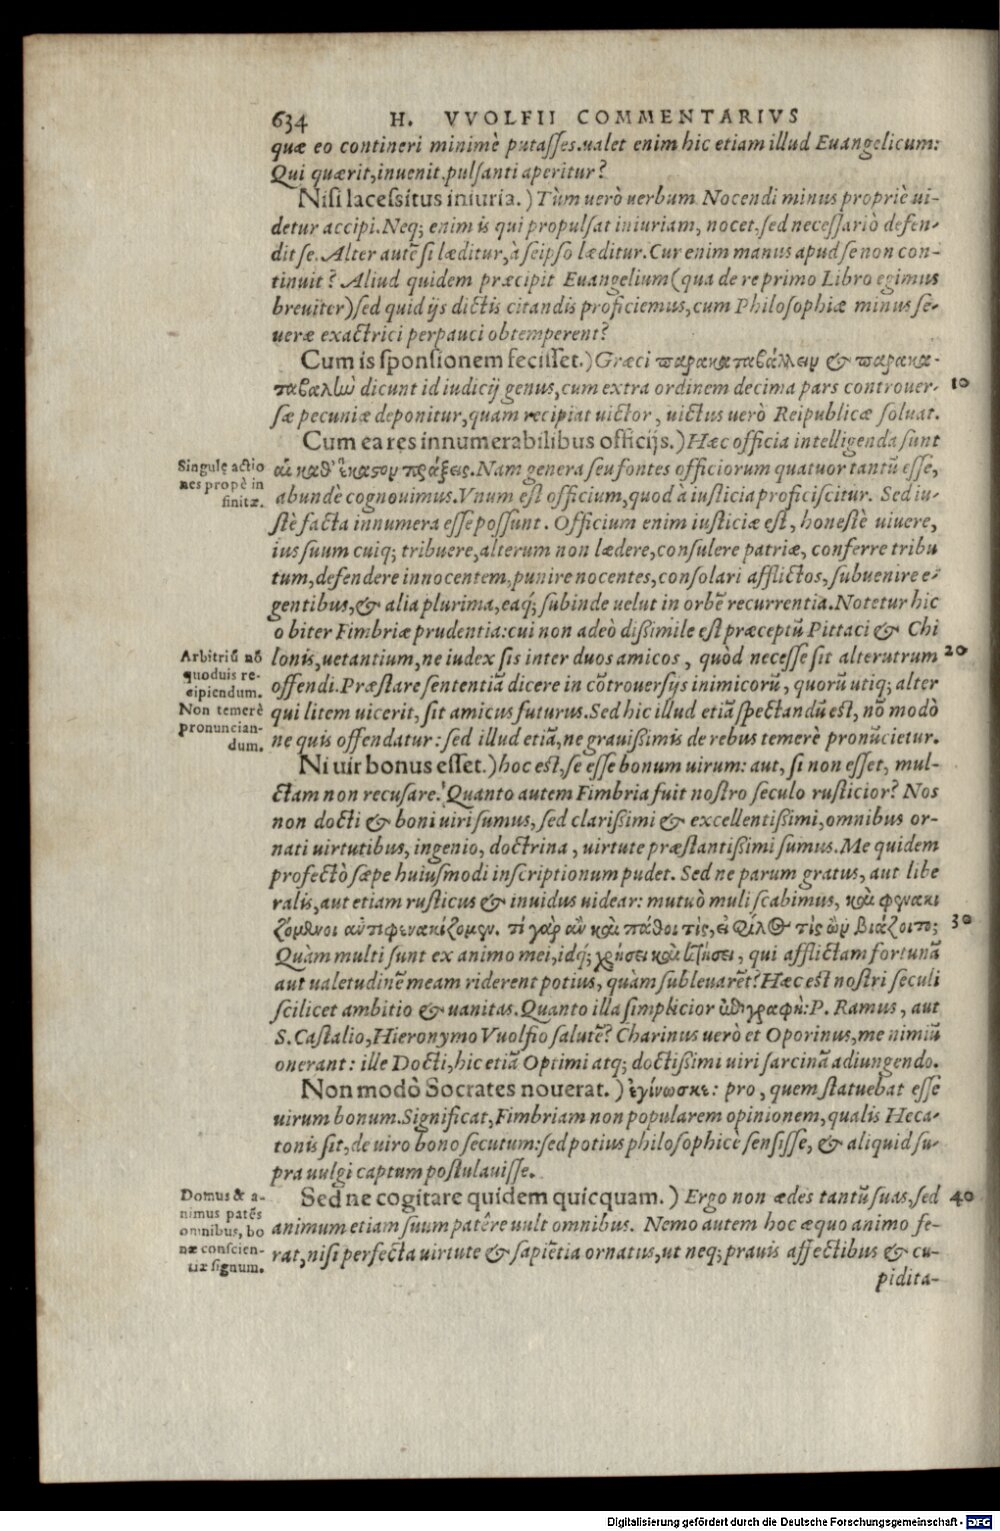 634 H. VVOLFII COMMENTARIVS
quæ eo contineri minimè putaſſes.ualet enim hic etiam illud Euangelicum:
Qui quærit,inuenit.pulſanti aperitur?
Niſi laceſsitus iniuria.) Tùm uerò uerbum Nocendi minus propriè ui-
detur accipi.Neq; enim is qui propulſat iniuriam, nocet,ſed neceſſariò defen-
dit ſe. Alter autē ſi læditur,à ſeipſo læditur. Cur enim manus apud ſe non con-
tinuit? Aliud quidem præcipit Euangelium(qua de re primo Libro egimus
breuiter)ſed quid ijs dictis citandis proficiemus,cum Philoſophiæ minus ſe-
ueræ exactrici perpauci obtemperent?
Cum is ſponſionem feciſſet.) Græci παρακαταβάλλειν & παρακα-
ταβολὼ dicunt id iudicij genus,cum extra ordinem decima pars controuer- 10
ſæ pecuniæ deponitur,quam recipiat uictor, uictus uerò Reipublicæ ſoluat.
Cum ea res innumerabilibus officijs.) Hæc officia intelligenda ſunt
Singulę actio
nes propè in
finitæ.
αἱ καθ᾽ ἕκαστον πράξεις. Nam genera ſeu fontes officiorum quatuor tantū eſſe,
abundè cognouimus.Vnum eſt officium,quod à iuſticia proficiſcitur. Sed iu-
ſtè facta innumera eſſe poſſunt. Officium enim iuſticiæ eſt, honeſtè uiuere,
ius ſuum cuiq; tribuere,alterum non lædere,conſulere patriæ, conferre tribu
tum,defendere innocentem,punire nocentes,conſolari afflictos,ſubuenire e-
gentibus,& alia plurima,eaq́; ſubinde uelut in orbē recurrentia. Notetur hic
obiter Fimbriæ prudentia:cui non adeò diſsimile eſt præceptū Pittaci & Chi
Arbitriū nō
quoduis re-
cipiendum.
Non temerè
pronuncian-
dum.
lonis,uetantium,ne iudex ſis inter duos amicos, quòd neceſſe ſit alterutrum 20
offendi.Præſtare ſententiā dicere in cōtrouerſijs inimicorū, quorū utiq; alter
qui litem uicerit, ſit amicus futurus.Sed hic illud etiā ſpectandū eſt, nō modò
ne quis offendatur: ſed illud etiā,ne grauiſsimis de rebus temerè pronūcietur.
Ni uir bonus eſſet.) hoc eſt,ſe eſſe bonum uirum: aut, ſi non eſſet, mul-
ctam non recuſare. Quanto autem Fimbria fuit noſtro ſeculo ruſticior? Nos
non docti & boni uiri ſumus, ſed clariſsimi & excellentiſsimi,omnibus or-
nati uirtutibus, ingenio, doctrina, uirtute præſtantiſsimi ſumus. Me quidem
profectò ſæpe huiuſmodi inſcriptionum pudet. Sed ne parum gratus, aut libe
ralis,aut etiam ruſticus & inuidus uidear: mutuò muli ſcabimus, καὶ φενακι
ζόμενοι ἀντιφενακίζομεν. τί γὰρ ἂν καὶ πάθοι τὶς, εἰ φίλος τὶς ὢν βιάζοιτο; 30
Quàm multi ſunt ex animo mei,idq́; χρήσει καὶ κτήσει, qui afflictam fortunā
aut ualetudinē meam riderent potius, quàm ſubleuarēt? Hæc eſt noſtri ſeculi
ſcilicet ambitio & uanitas. Quanto illa ſimplicior ἐπιγραφὴ: P. Ramus, aut
S. Caſtalio, Hieronymo Vuolfio ſalutē? Charinus uerò et Oporinus,me nimiū
onerant: ille Docti,hic etiā Optimi atq; doctiſsimi uiri ſarcinā adiungendo.
Non modò Socrates nouerat.) ἐγίνωσκε: pro, quem ſtatuebat eſſe
uirum bonum. Significat,Fimbriam non popularem opinionem,qualis Heca-
tonis ſit,de uiro bono ſecutum:ſed potius philoſophicè ſenſiſſe, & aliquid ſu-
pra uulgi captum poſtulauiſſe.
Domus & a-
nimus patēs
omnibus, bo
næ conſcien-
tiæ ſignum.
Sed ne cogitare quidem quicquam.) Ergo non ædes tantū ſuas,ſed 40
animum etiam ſuum patêre uult omnibus. Nemo autem hoc æquo animo fe-
rat,niſi perfecta uirtute & ſapiētia ornatus,ut neq; prauis affectibus & cu-
pidita-
Digitalisierung gefördert durch die Deutsche Forschungsgemeinschaft - DFG